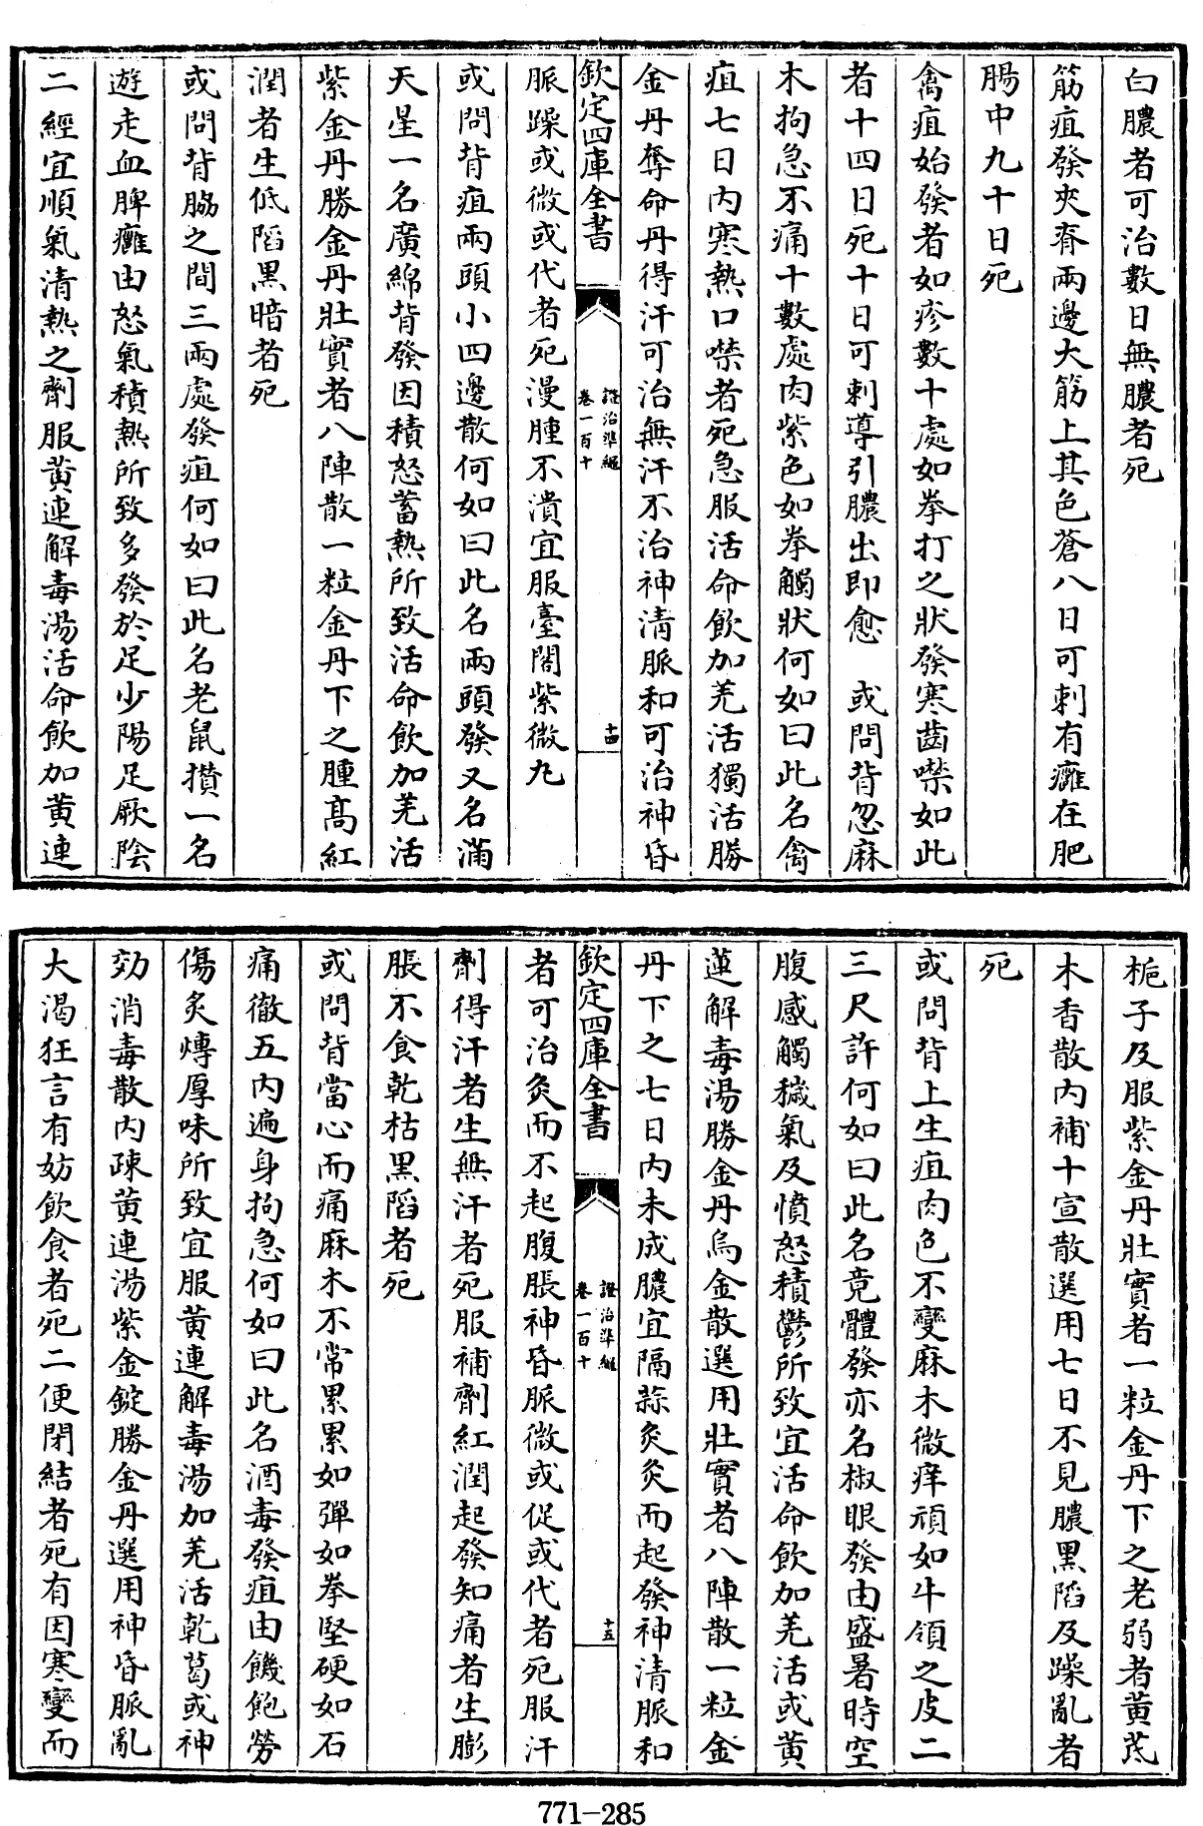 白膿者可治數日無膿者死
筋疽發夾脊兩邊大筋上其色蒼八日可刺有癰在肥
腸中九十日死
禽疽始發者如疹數十處如拳打之狀發寒齒噤如此
者十四日死十日可刺導引膿出即愈　或問背忽麻
木拘急不痛十數處肉紫色如拳觸狀何如曰此名禽
疽七日內寒熱口噤者死急服活命飲加羌活獨活勝
金丹奪命丹得汗可治無汗不治神清脈和可治神昏
欽定四庫全書
證治準繩
卷一百十
十四
脈躁或微或代者死漫腫不潰宜服臺閣紫微丸
或問背疽兩頭小四邊散何如曰此名兩頭發又名滿
天星一名廣綿背發因積怒蓄熱所致活命飲加羌活
紫金丹勝金丹壯實者八陣散一粒金丹下之腫高紅
潤者生低陷黑暗者死
或問背脇之間三兩處發疽何如曰此名老鼠攢一名
遊走血脾癰由怒氣積熱所致多發於足少陽足厥陰
二經宜順氣清熱之劑服黄連解毒湯活命飲加黄連
梔子及服紫金丹壯實者一粒金丹下之老弱者黄芪
木香散內補十宣散選用七日不見膿黑陷及躁亂者
死
或問背上生疽肉色不變麻木微痒頑如牛領之皮二
三尺許何如曰此名竟體發亦名椒眼發由盛暑時空
腹感觸穢氣及憤怒積鬱所致宜活命飲加羌活或黄
蓮解毒湯勝金丹烏金散選用壯實者八陣散一粒金
丹下之七日內未成膿宜隔蒜灸灸而起發神清脈和
欽定四庫全書
證治準繩
卷一百十
十五
者可治灸而不起腹脹神昏脈微或促或代者死服汗
劑得汗者生無汗者死服補劑紅潤起發知痛者生膨
脹不食乾枯黑陷者死
或問背當心而痛麻木不常累累如彈如拳堅硬如石
痛徹五內遍身拘急何如曰此名酒毒發疽由饑飽勞
傷炙煿厚味所致宜服黄連解毒湯加羌活乾葛或神
効消毒散內疎黄連湯紫金錠勝金丹選用神昏脈亂
大渴狂言有妨飲食者死二便閉結者死有因寒變而
771-285